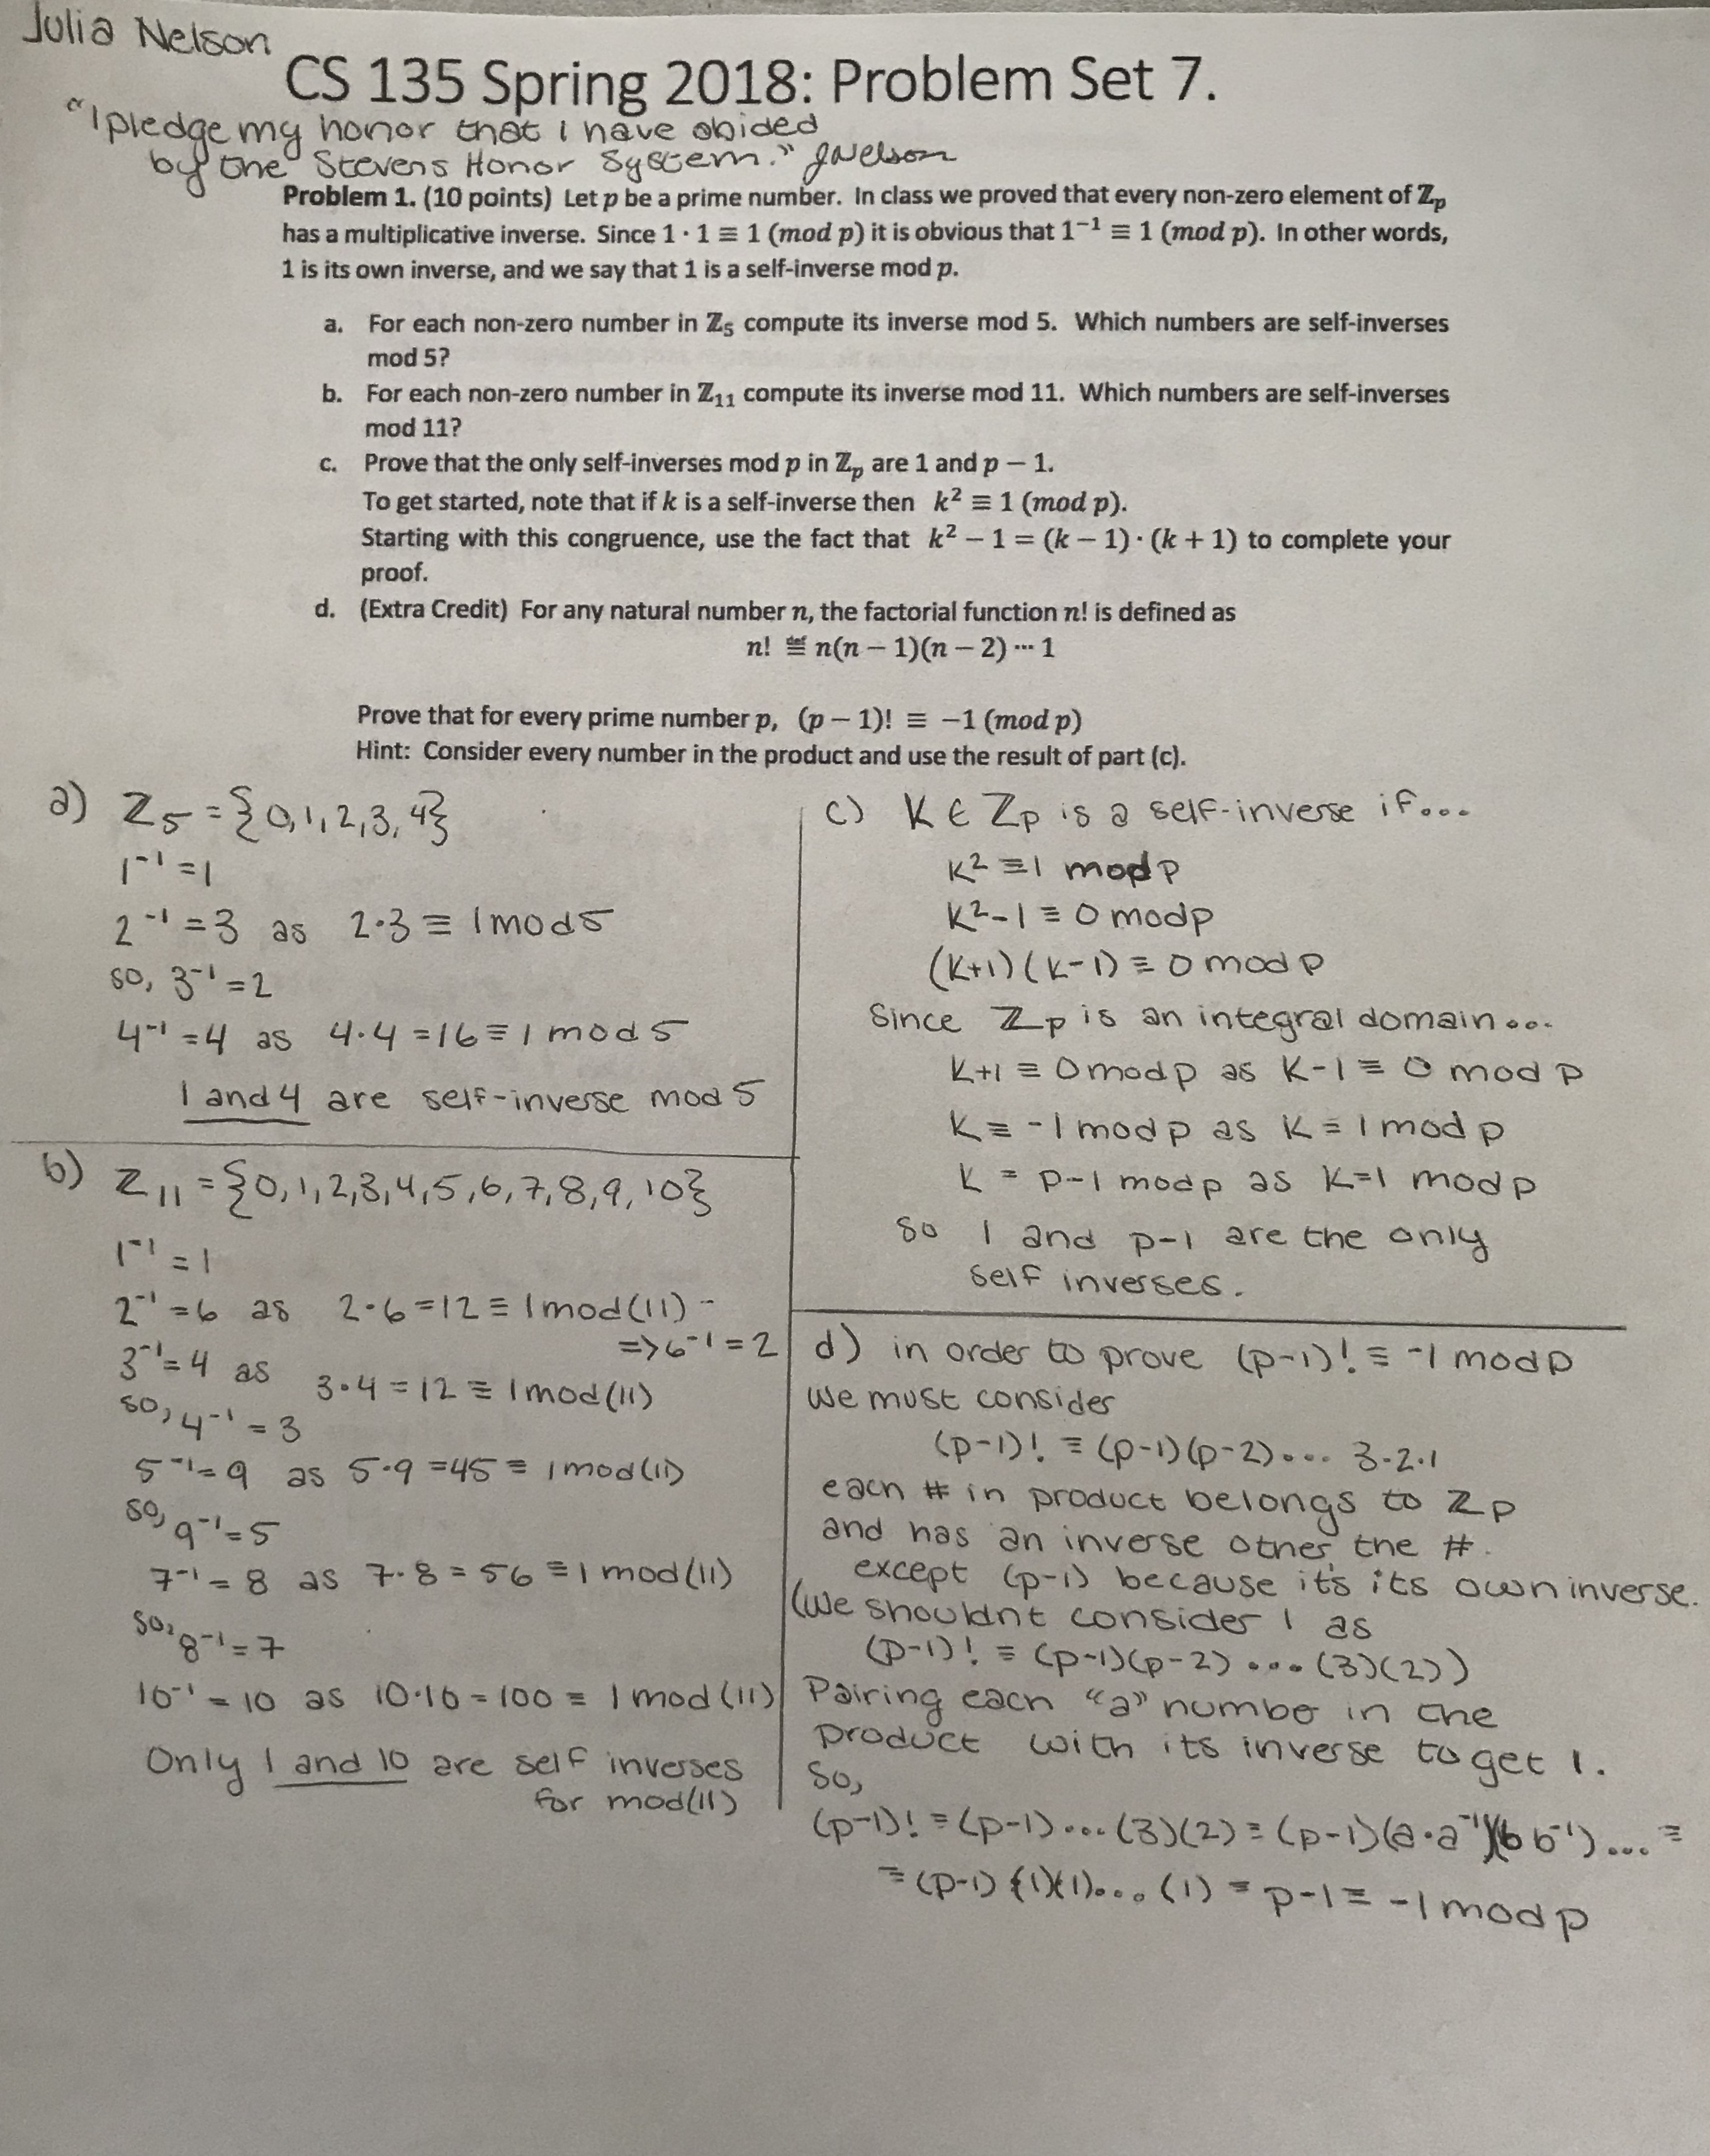 Julia Nelson
CS 135 Spring 2018: Problem Set 7.
"I pledge my honor that I have abided
by the Stevens Honor System." JNelson
Problem 1. (10 points) Let p be a prime number. In class we proved that every non-zero element of ℤₚ
has a multiplicative inverse. Since 1 · 1 ≡ 1 (mod p) it is obvious that 1⁻¹ ≡ 1 (mod p). In other words,
1 is its own inverse, and we say that 1 is a self-inverse mod p.
a. For each non-zero number in ℤ₅ compute its inverse mod 5. Which numbers are self-inverses
mod 5?
b. For each non-zero number in ℤ₁₁ compute its inverse mod 11. Which numbers are self-inverses
mod 11?
c. Prove that the only self-inverses mod p in ℤₚ are 1 and p − 1.
To get started, note that if k is a self-inverse then k² ≡ 1 (mod p).
Starting with this congruence, use the fact that k² − 1 = (k − 1) · (k + 1) to complete your
proof.
d. (Extra Credit) For any natural number n, the factorial function n! is defined as
n! ≝ n(n − 1)(n − 2) ⋯ 1
Prove that for every prime number p, (p − 1)! ≡ −1 (mod p)
Hint: Consider every number in the product and use the result of part (c).
a) ℤ₅ = {0,1,2,3,4}
1⁻¹ = 1
2⁻¹ = 3 as 2·3 ≡ 1 mod 5
so, 3⁻¹ = 2
4⁻¹ = 4 as 4·4 = 16 ≡ 1 mod 5
1 and 4 are self-inverse mod 5
b) ℤ₁₁ = {0,1,2,3,4,5,6,7,8,9,10}
1⁻¹ = 1
2⁻¹ = 6 as 2·6 = 12 ≡ 1 mod(11)
=> 6⁻¹ = 2
3⁻¹ = 4 as 3·4 = 12 ≡ 1 mod(11)
so, 4⁻¹ = 3
5⁻¹ = 9 as 5·9 = 45 ≡ 1 mod(11)
so, 9⁻¹ = 5
7⁻¹ = 8 as 7·8 = 56 ≡ 1 mod(11)
so, 8⁻¹ = 7
10⁻¹ = 10 as 10·10 = 100 ≡ 1 mod(11)
Only 1 and 10 are self inverses
for mod(11)
c) K ∈ ℤp is a self-inverse if...
K² ≡ 1 mod p
K²-1 ≡ 0 mod p
(K+1)(K-1) ≡ 0 mod p
Since ℤp is an integral domain...
K+1 ≡ 0 mod p as K-1 ≡ 0 mod p
K ≡ -1 mod p as K ≡ 1 mod p
K = p-1 mod p as K=1 mod p
so 1 and p-1 are the only
self inverses.
d) in order to prove (p-1)! ≡ -1 mod p
we must consider
(p-1)! ≡ (p-1)(p-2)... 3·2·1
each # in product belongs to ℤp
and has an inverse other the #.
except (p-1) because it's its own inverse.
(we shouldnt consider 1 as
(p-1)! ≡ (p-1)(p-2) ... (3)(2))
Pairing each "a" number in the
product with its inverse to get 1.
So,
(p-1)! ≡ (p-1)...(3)(2) ≡ (p-1)(a·a⁻¹)(b b⁻¹)... ≡
≡ (p-1)(1)(1)...(1) = p-1 ≡ -1 mod p